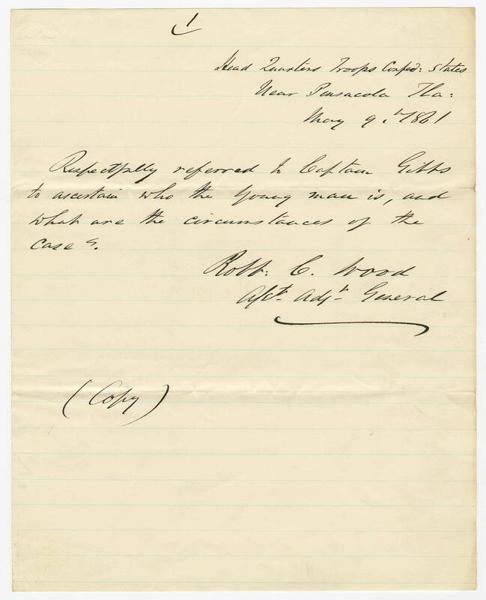 1
Head Quarters Troops Confed: States
Near Pensacola Fla:
May 9.th 1861
Respectfully referred to Captain Gibbs
to ascertain who the young man is, and
what are the circumstances of the
case &.
Robt. C. Wood
Asst. Adjt. General
(Copy)